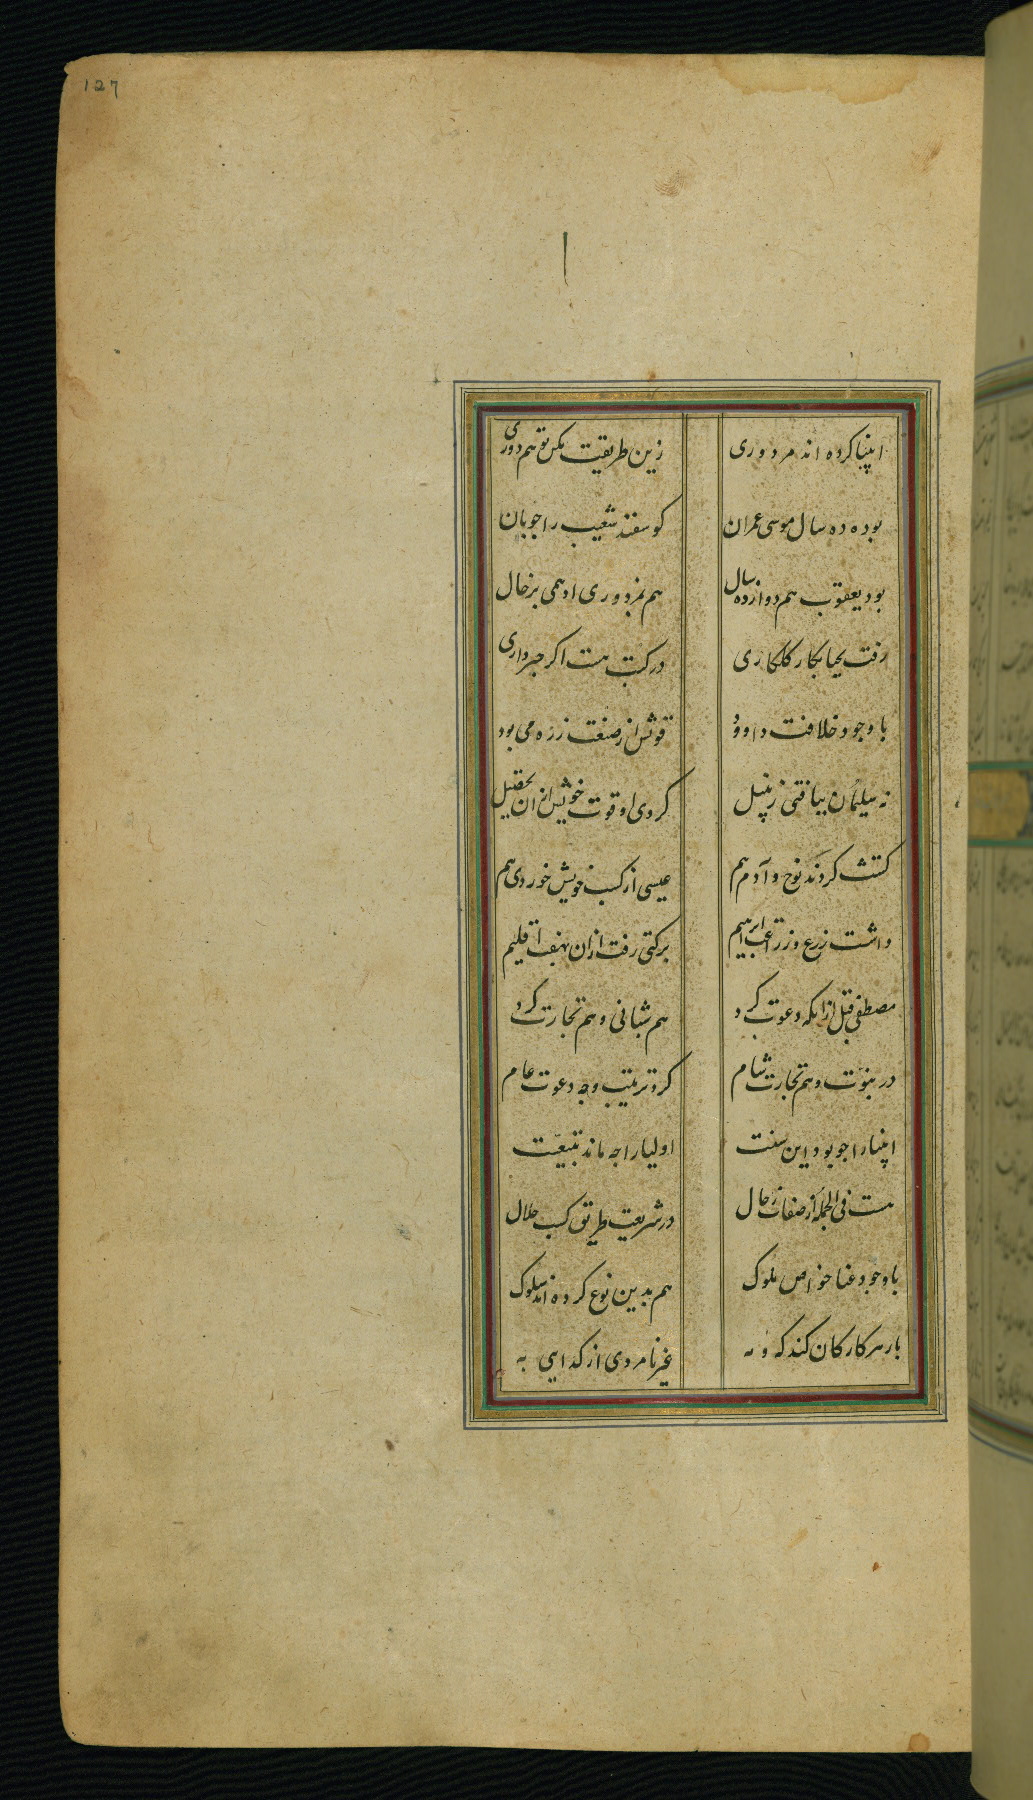 127
انبیا کرده اند مزدوری زین طریقت مکن تو هم دوری
بوده ده سال موسی عمران کوسفند شعیب را جوبان
بود یعقوب هم دوازده سال هم بمزدوری ادهمی برخال
رفت یحیا بکار کلکاری در کتب هست اکر خبر داری
با وجود خلافت داوود قوتش از صنعت زره می بود
نه سلیمان ببافتی زنبیل کردی او قوت خویش از ان تحصیل
کشت کردند نوح و آدم هم عیسی از کسب خویش خوردی هم
داشت زرع و زراعت ابرهیم برکتی رفت ازان بهفت اقلیم
مصطفی قبل ازانکه دعوت کرد هم شبانی و هم تجارت کرد
در نبوّت و هم تجارت شام کرد ترتیب وجه دعوت عام
انبیا را جو بود این سنت اولیا را جه ماند تبعیّت
هست فی الجمله از صفات رجال در شریعت طریق کسب حلال
با وجود غنا خواص ملوک هم بدین نوع کرده اند سلوک
بار هر کار کان کند که و مه غیر نامردی از کدایی به